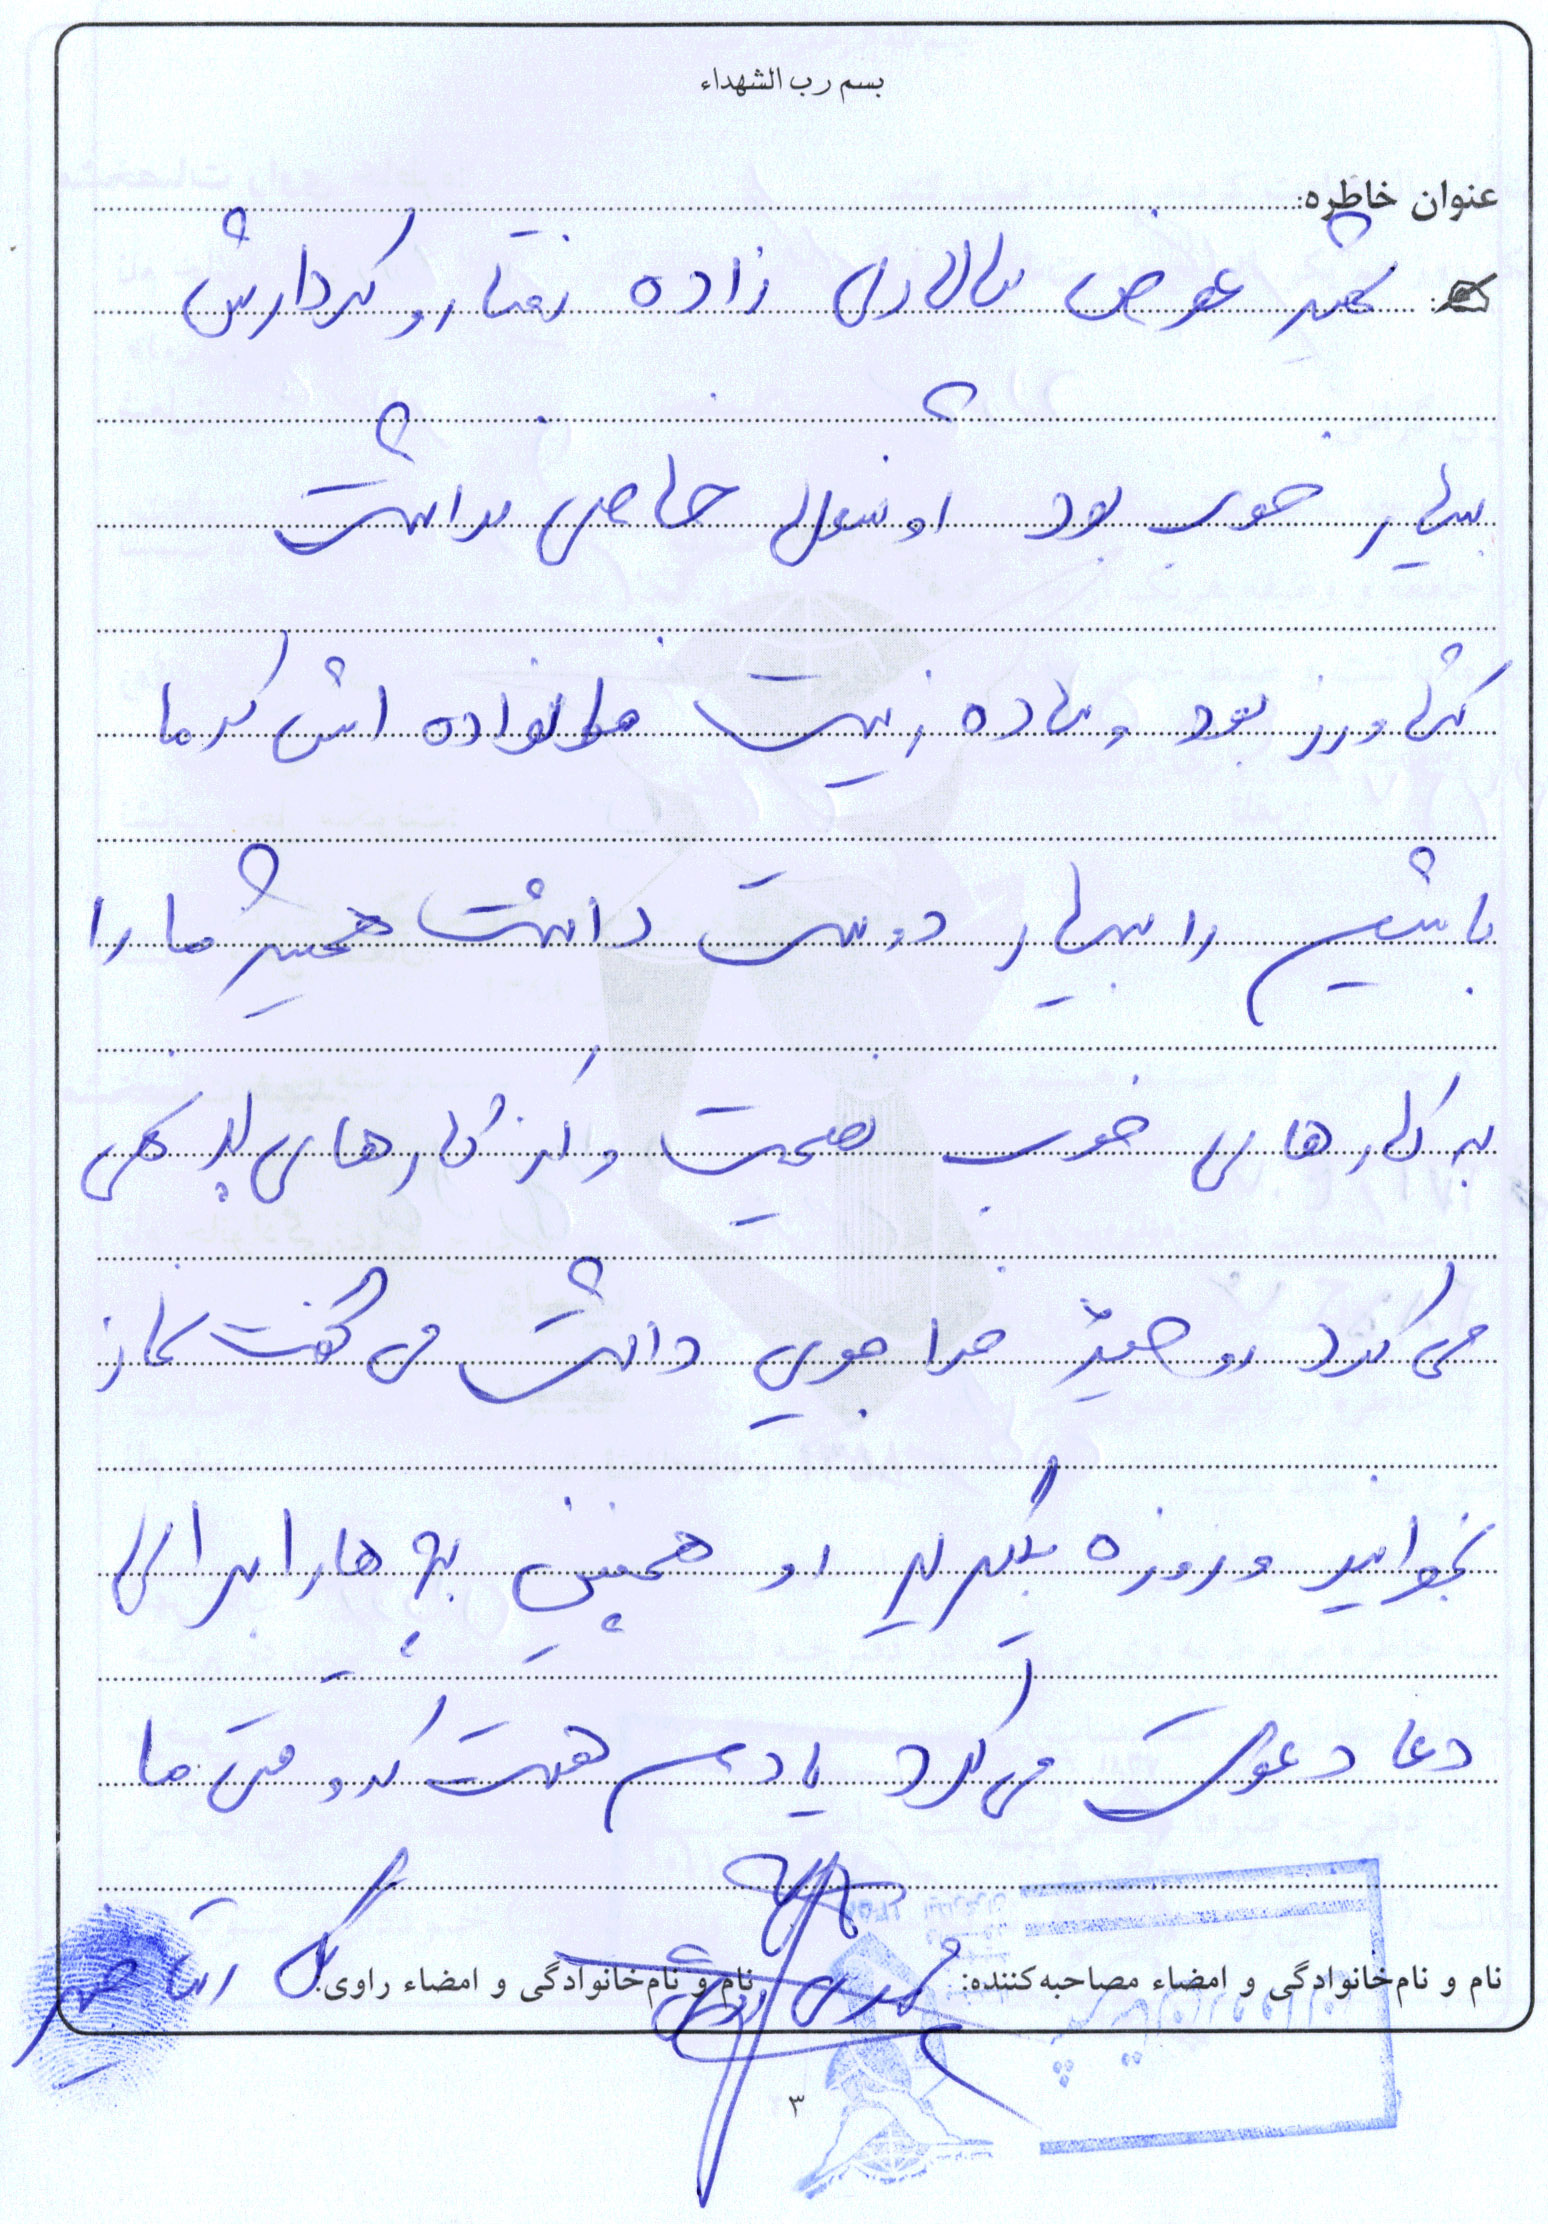 بسم رب الشهداء
عنوان خاطره:
شهید عوض سالاری زاده رفتار و کردارش
بسیار خوب بود او شغل خاصی نداشت
کشاورز بود و ساده زیست خانواده اش که ما
باشیم را بسیار دوست داشت همیشه ما را
به کارهای خوب نصحیت و از کارهای بد نهی
می کرد روحیه خدا جویی داشت می گفت نماز
بخوانید و روزه بگیرید او همچنین بچه ها را برای
دعا دعوت می کرد یادم هست که وقتی ما
نام و نام‌خانوادگی و امضاء مصاحبه‌کننده: نام و نام‌خانوادگی و امضاء راوی:
۳